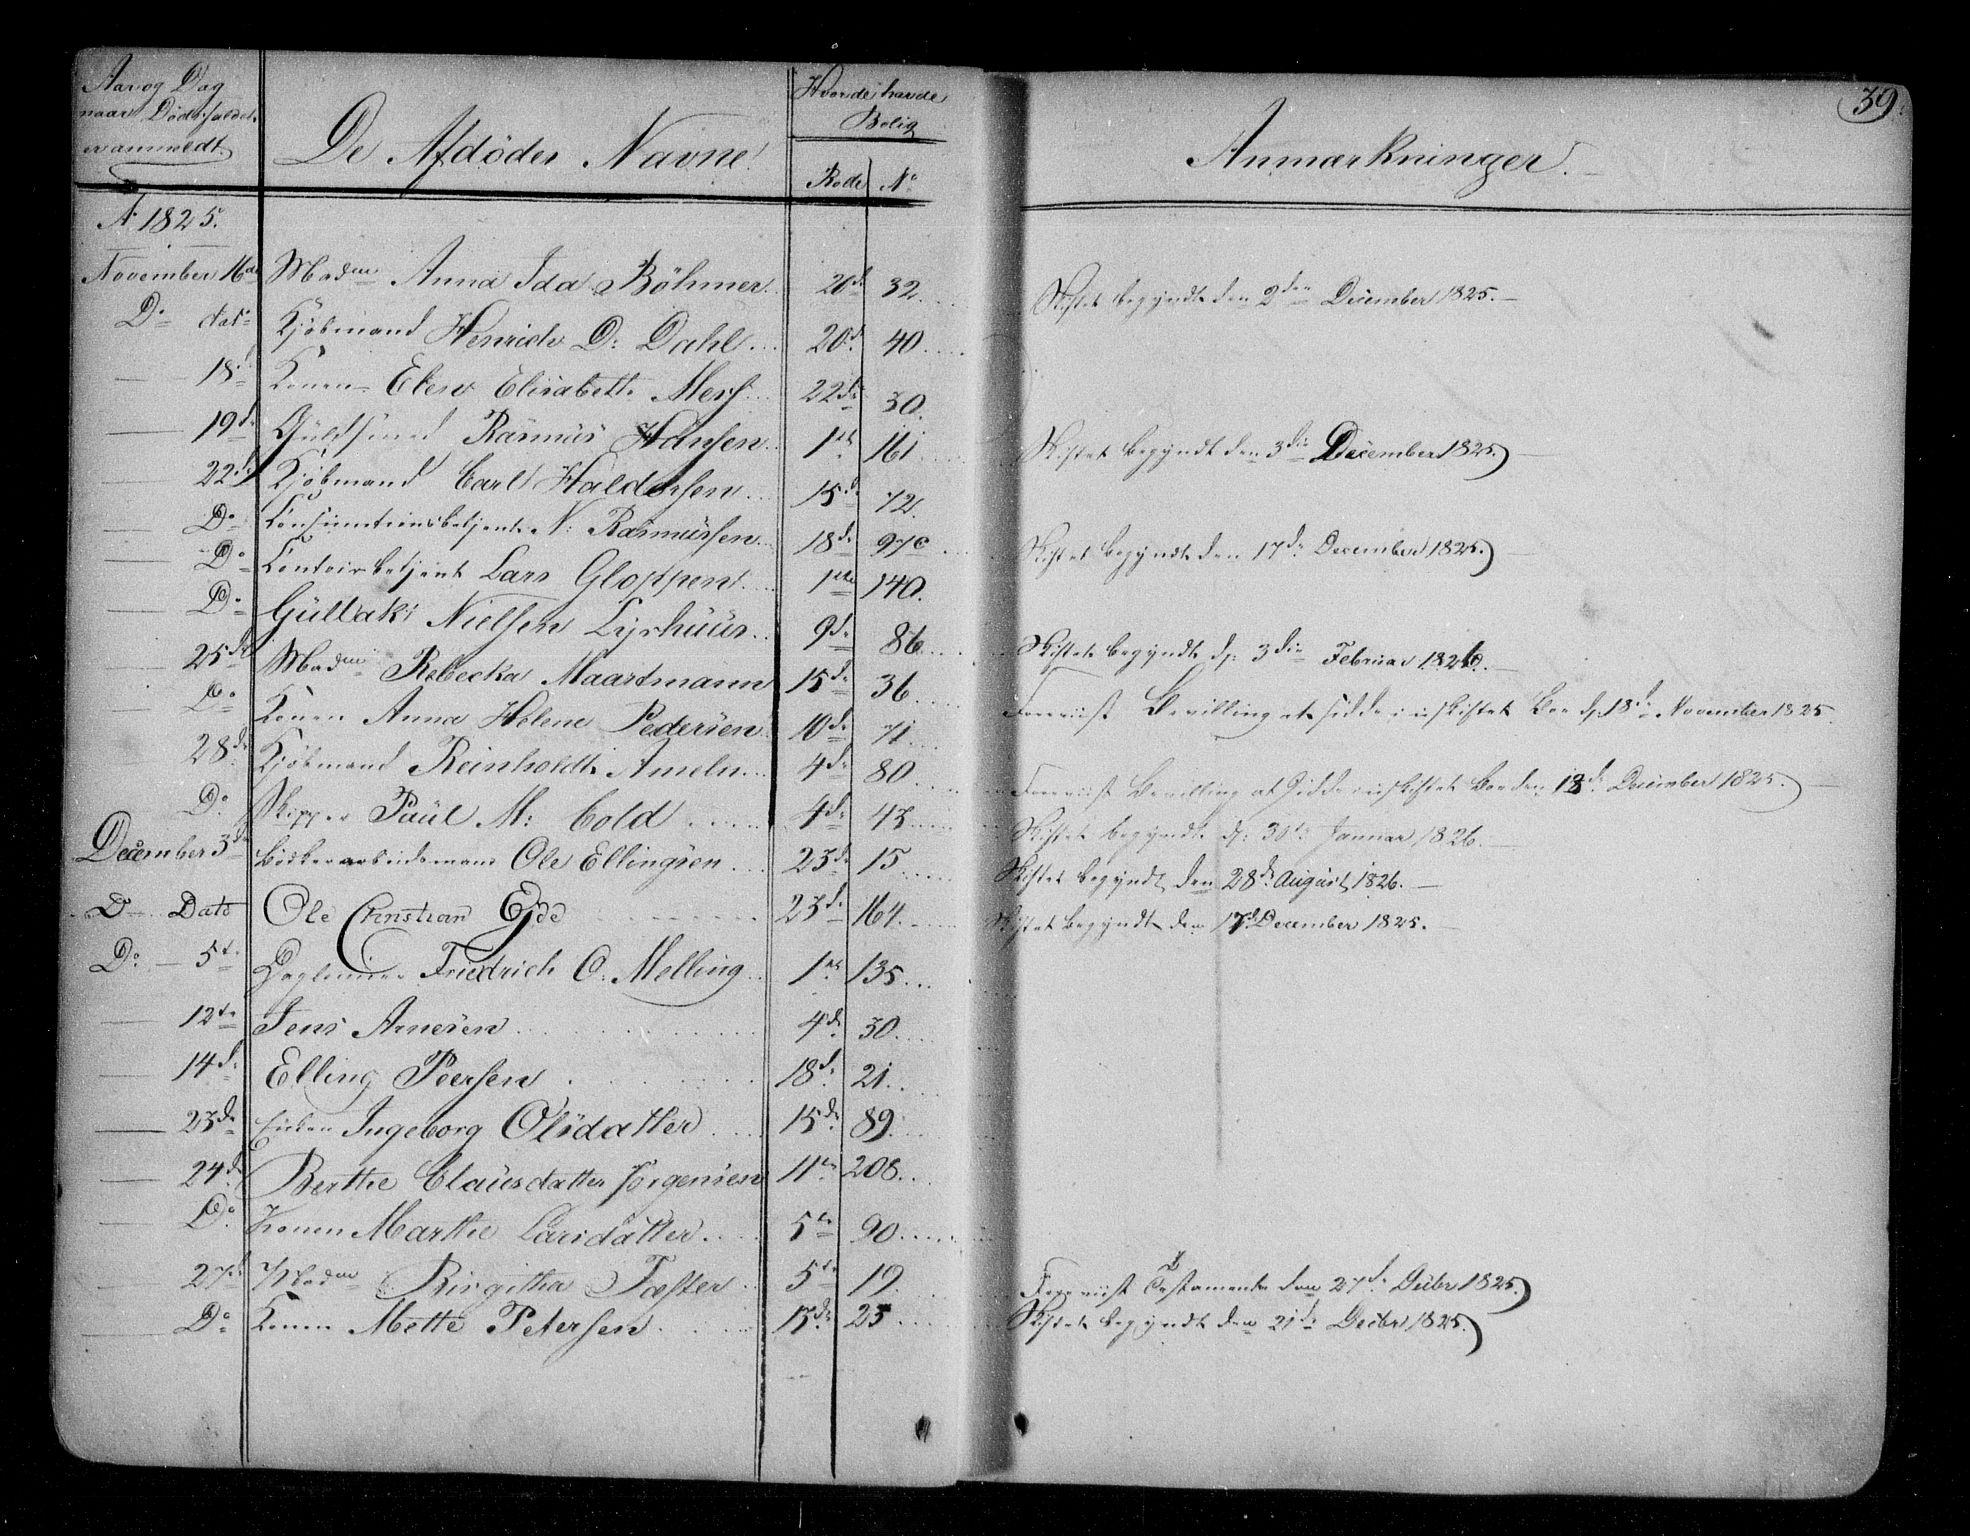 39.
Aar og Dag
naar Dødsfaldet
er anmeldt.
De Afdødes Navne.
Hvor de havde
Bolig
Rode No
Anmærkninger.
Ao 1825.
November 16de Madme Anna Ida Böhmer. 20de 32. Skiftet begyndt den 2den December 1825.
Do dato Kjøbmand Henrich D: Dahl... 20d. 40.
18d Konen Elen Elisabeth 22de 30.
19de Güldsmed Rasmüs Hansen. 1ste 161 Skiftet begyndt den 3die December 1825.
22de Kjøbmand Carl Haldorsen 15de 72.
Do Consumtionsbetjent N: Rasmüssen. 18de 97c Skiftet begyndt den 17de December 1825.
Do Contoirbetjent Lars Gloppen 1ste 140.
Do Güllak Nielsen Lyrhuus. 9de 86. Skiftet begyndt d: 3die Februar 1826.
25de Madme Rebecka Maartmann 15de 36
Do Konen Anna Helene Pedersen 10de 71 Foreviist Bevilling at sidde i uskiftet Boe d: 18de November 1825.
28de Kjøbmand Reinholdt Ameln 4de 80 Foreviist Bevilling at Sidde i uskiftet Boe den 18de December 1825.
Do Skipper Paül M: Cold 4de 43 Skiftet begyndt d: 30te Januar 1826.
December 3de Ole Ellingsen 23de 15 Skiftet begyndt den 28de Augüst 1826.
Do Dato Ole Christian Eide 23de 164. Skiftet begyndt den 17de December 1825.
Do 5te Dagleiier Friedrich C. Melling 1ste 135
12te Jens Arnesen 4de 30.
14de Elling Peersen 18de 21.
23de Enken Ingeborg Olsdatter 15de 89.
24de Berthe Claüsdatter Jørgensen 11te 208.
Do. Konen Marthe Larsdatter. 5te 90
27de Madme Birgitha Fæster 5te 19. Foreviist Testamente den 27de Decbr 1825.
Do Konen Mette Petersen 15de 25 Skiftet begyndt den 21de Decbr 1825.